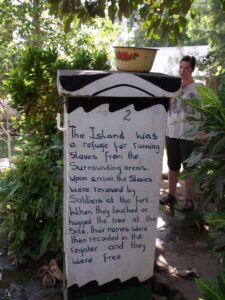 2
The Island was
a refuge for running
slaves from the
Surrounding areas.
Upon arrival the Slaves
were received by
Soldiers at the fort.
When they touched or
hugged the tree at the
Site, their names were
then recorded in the
register and they
were free